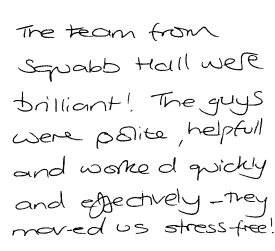 The team from
Squabb Hall were
brilliant! The guys
were polite, helpfull
and worked quickly
and effectively - they
moved us stress-free!